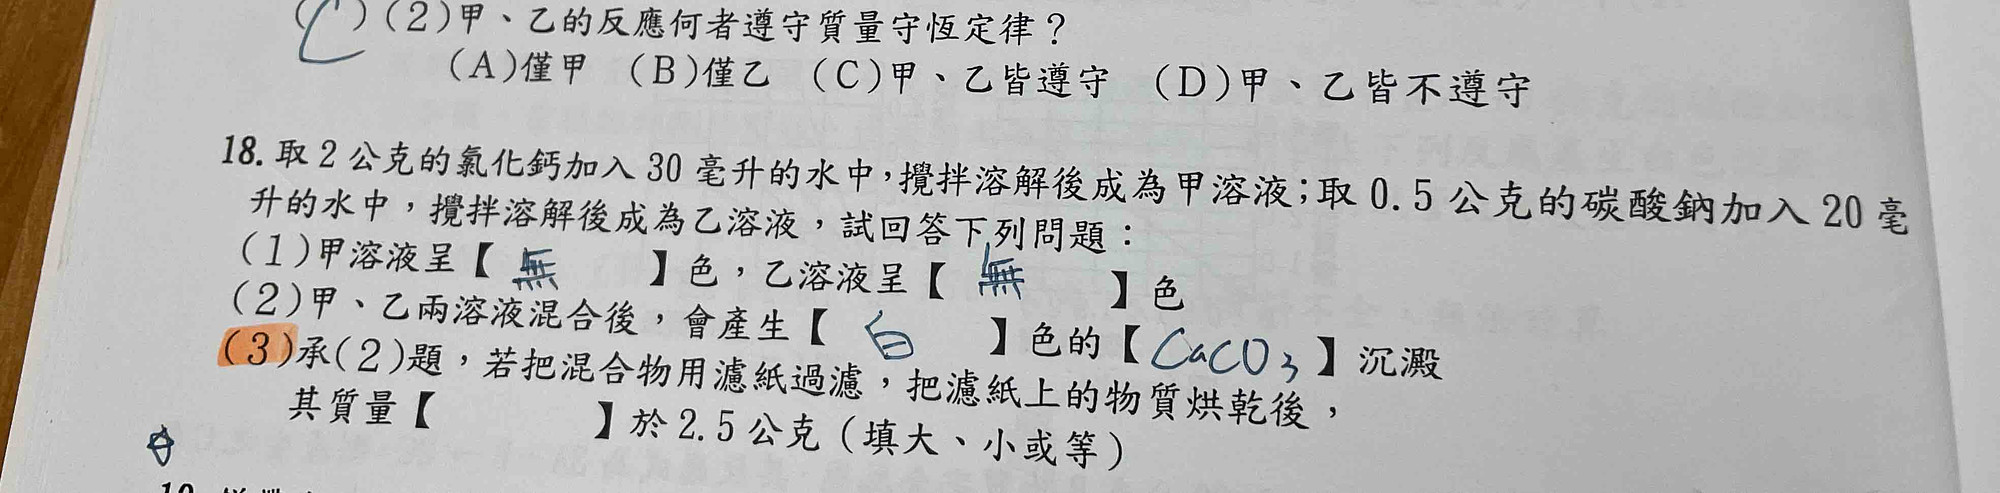 ( C ) (2)甲、乙的反應何者遵守質量守恆定律？
(A)僅甲 (B)僅乙 (C)甲、乙皆遵守 (D)甲、乙皆不遵守
18. 取 2 公克的氯化鈣加入 30 毫升的水中，攪拌溶解後成為甲溶液；取 0.5 公克的碳酸鈉加入 20 毫
升的水中，攪拌溶解後成為乙溶液，試回答下列問題：
(1)甲溶液呈【 無 】色，乙溶液呈【 無 】色
(2)甲、乙兩溶液混合後，會產生【 白 】色的【 CaCO3 】沉澱
(3)承(2)題，若把混合物用濾紙過濾，把濾紙上的物質烘乾後，
其質量【 】於 2.5 公克（填大、小或等）